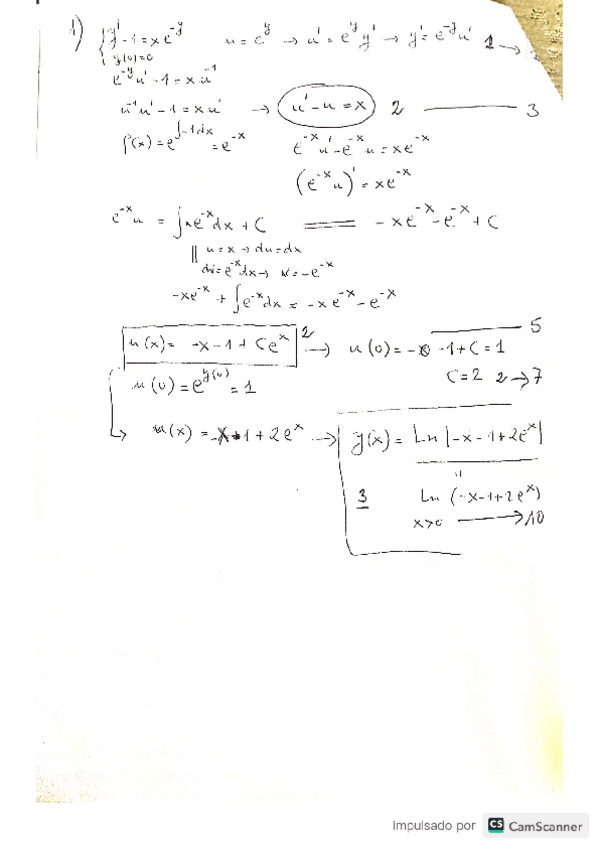 1) { y' - 1 = x e^-y    u = e^y → u' = e^y y' → y' = e^-y u'  1 →
y(0) = 0
e^-y u' - 1 = x u^-1
u^-1 u' - 1 = x u^-1 → u' - u = x  2 —— 3
ρ(x) = e^∫-1dx = e^-x    e^-x u' - e^-x u = x e^-x
(e^-x u)' = x e^-x
e^-x u = ∫ x e^-x dx + C ═══ - x e^-x - e^-x + C
|| u = x → du = dx
dv = e^-x dx → v = - e^-x
- x e^-x + ∫ e^-x dx = - x e^-x - e^-x
—— 5
u(x) = - x - 1 + C e^x  2 → u(0) = - 0 - 1 + C = 1
u(0) = e^y(0) = 1    C = 2  2 → 7
↳ u(x) = - x - 1 + 2 e^x → y(x) = Ln |- x - 1 + 2 e^x|
"
3    Ln (- x - 1 + 2 e^x)
x > 0 → 10
Impulsado por CS CamScanner